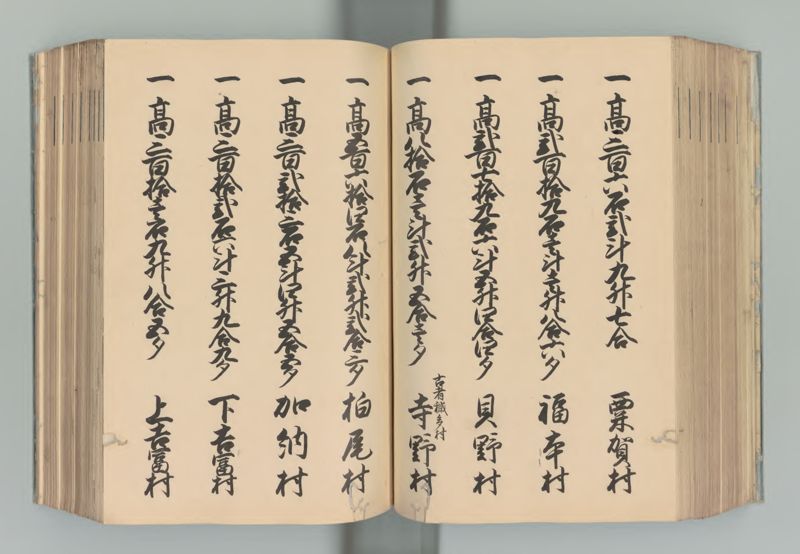 一 高三百六石弐斗九升七合 粟賀村
一 高弐百拾九石壱斗壱升八合六夕 福本村
一 高弐百六拾九石六斗五升四合四夕 貝野村
一 高八拾石壱斗弐升五合壱夕 古者穢多村 寺野村
一 高五百六拾四石八斗弐升弐合三夕 柏尾村
一 高三百弐拾三石五斗四升五合五夕 加納村
一 高三百拾弐石六斗三升九合九夕 下吉冨村
一 高三百拾壱石九升八合五夕 上吉冨村